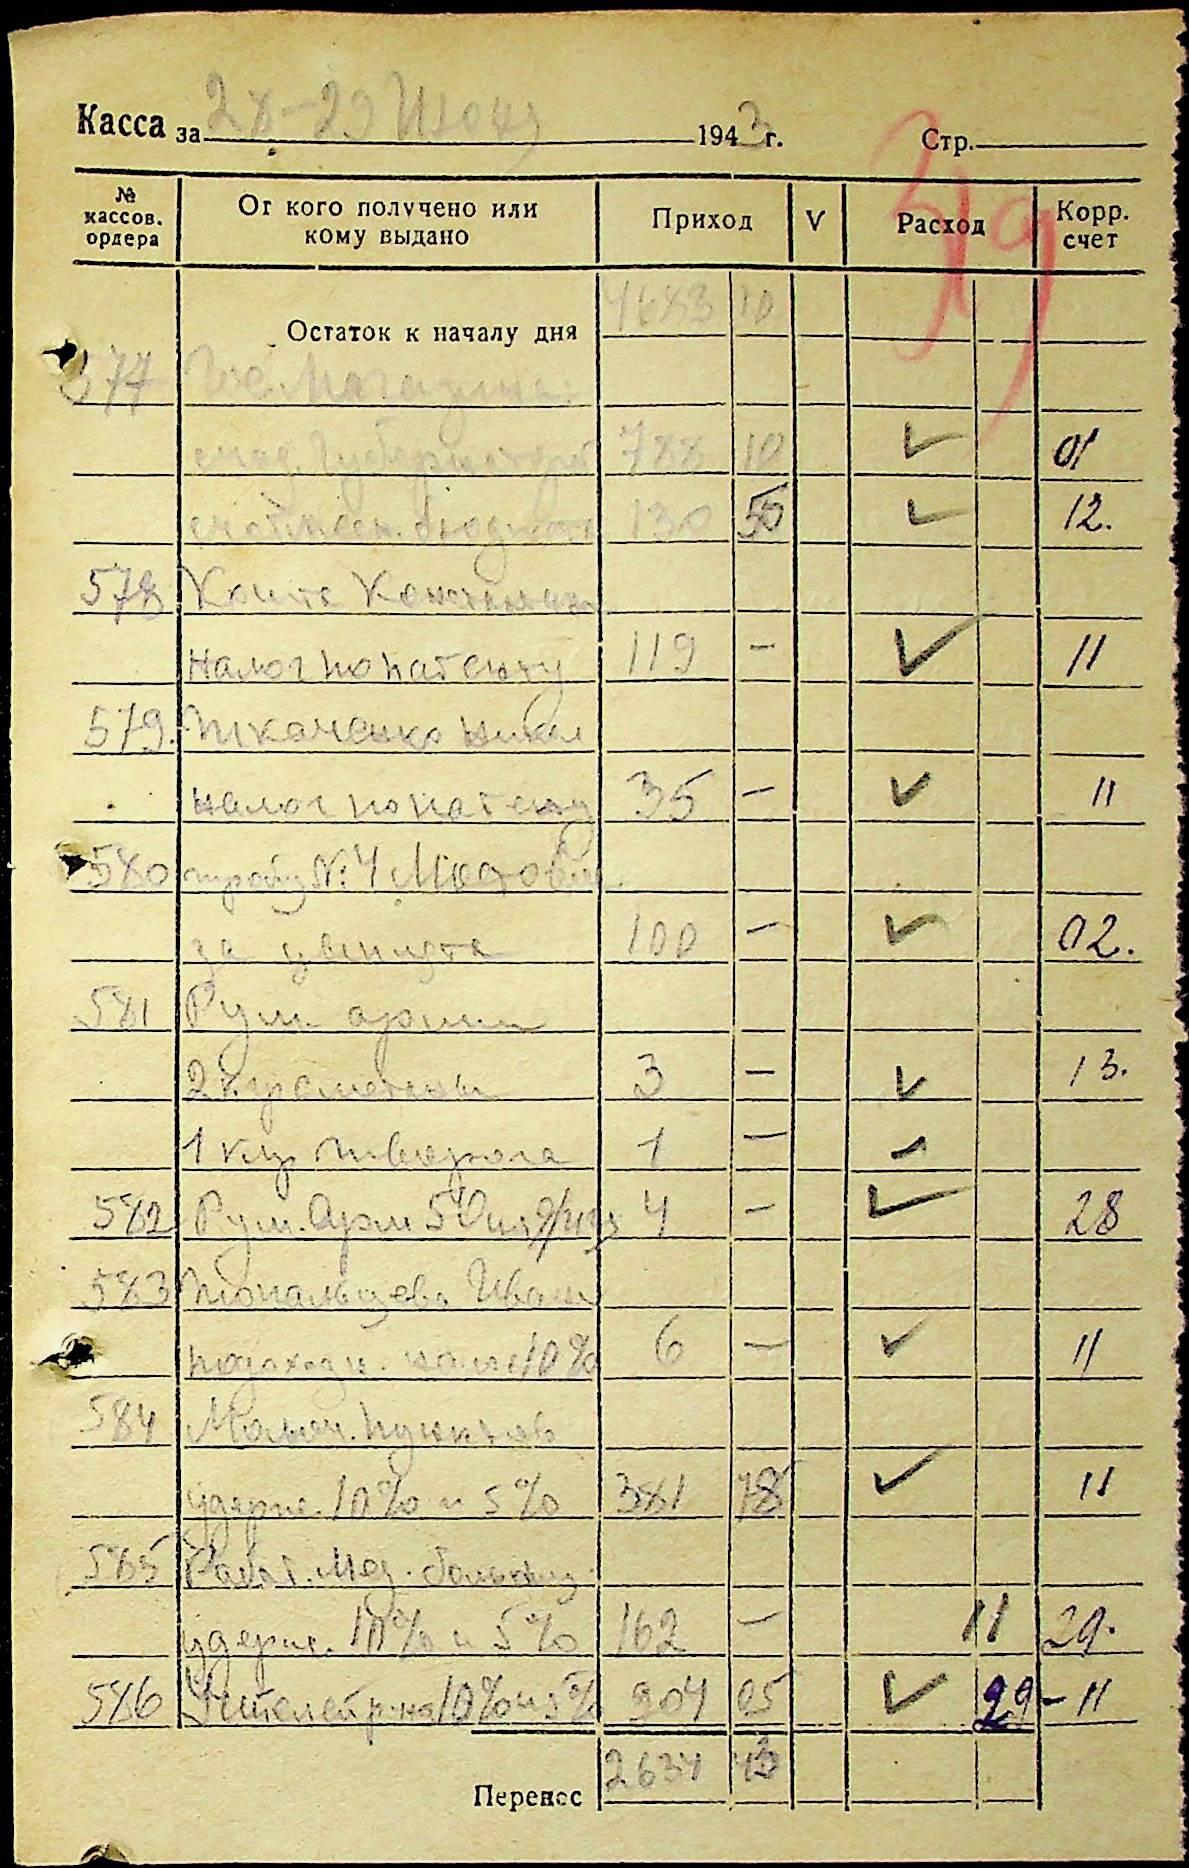 Касса за 28-29 Июня 1943 г. Стр.
39
№ кассов. ордера От кого получено или кому выдано Приход V Расход Корр. счет
Остаток к началу дня 4683 10
577
788 10 01
130 50 12.
578 Коите Константин
налог по патенту 119 — 11
579. Ткаченко Никол
налог по патенту 35 — 11
580 №: 4
за 100 — 02.
581 Рум. армии
2 кгр сметаны 3 — 13.
1 кгр творога 1 —
582 Рум. Арм 50 4 — 28
583 Иван
подоходн. налог 10% 6 — 11
584 Молоч. пунктов
удерж. 10% и 5% 381 78 11
585 Работ. Мед. больниц
удерж. 10% и 5% 162 — 11 29.
586 Учителей р-на 10% и 5% 904 05 29 – 11
Перенос 2634 43